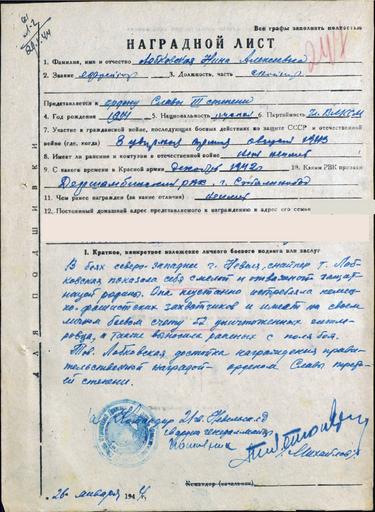 Все графы заполнять полностью
НАГРАДНОЙ ЛИСТ
1. Фамилия, имя и отчество Лобковская Нина Алексеевна
2. Звание ефрейтор 3. Должность, часть снайпер
Представляется к ордену Славы III степени
4. Год рождения 5. Национальность русская 6. Партийность чл. ВЛКСМ
7. Участие в гражданской войне, последующих боевых действиях по защите СССР и отечественной
войне (где, когда) 3 ударная армия 1943
8. Имеет ли ранения и контузии в отечественной войне
9. С какого времени в Красной армии декабрь 1942 г. 10. Каким РВК призван
г. Сталинабад
11. Чем ранее награжден (за какие отличия)
12. Постоянный домашний адрес представляемого к награждению и адрес его семьи
I. Краткое, конкретное изложение личного боевого подвига или заслуг
В боях северо-западнее г. Невеля, снайпер т. Лоб-
ковская показала себя смелой и отважной защит-
ницей родины. Она неустанно истребляла немец-
ко-фашистских захватчиков и имеет на своем
личном боевом счету уничтоженных гитле-
ровца, а также выносила раненых с поля боя.
Тов. Лобковская достойна награждения прави-
тельственной наградой - орденом Славы треть-
ей степени.
Командир 21 гв. Невельской
гвардии генерал-майор
Михайлов
Командир (начальник)
26 января 1944 г.
ДЛЯ ПОДШИВКИ